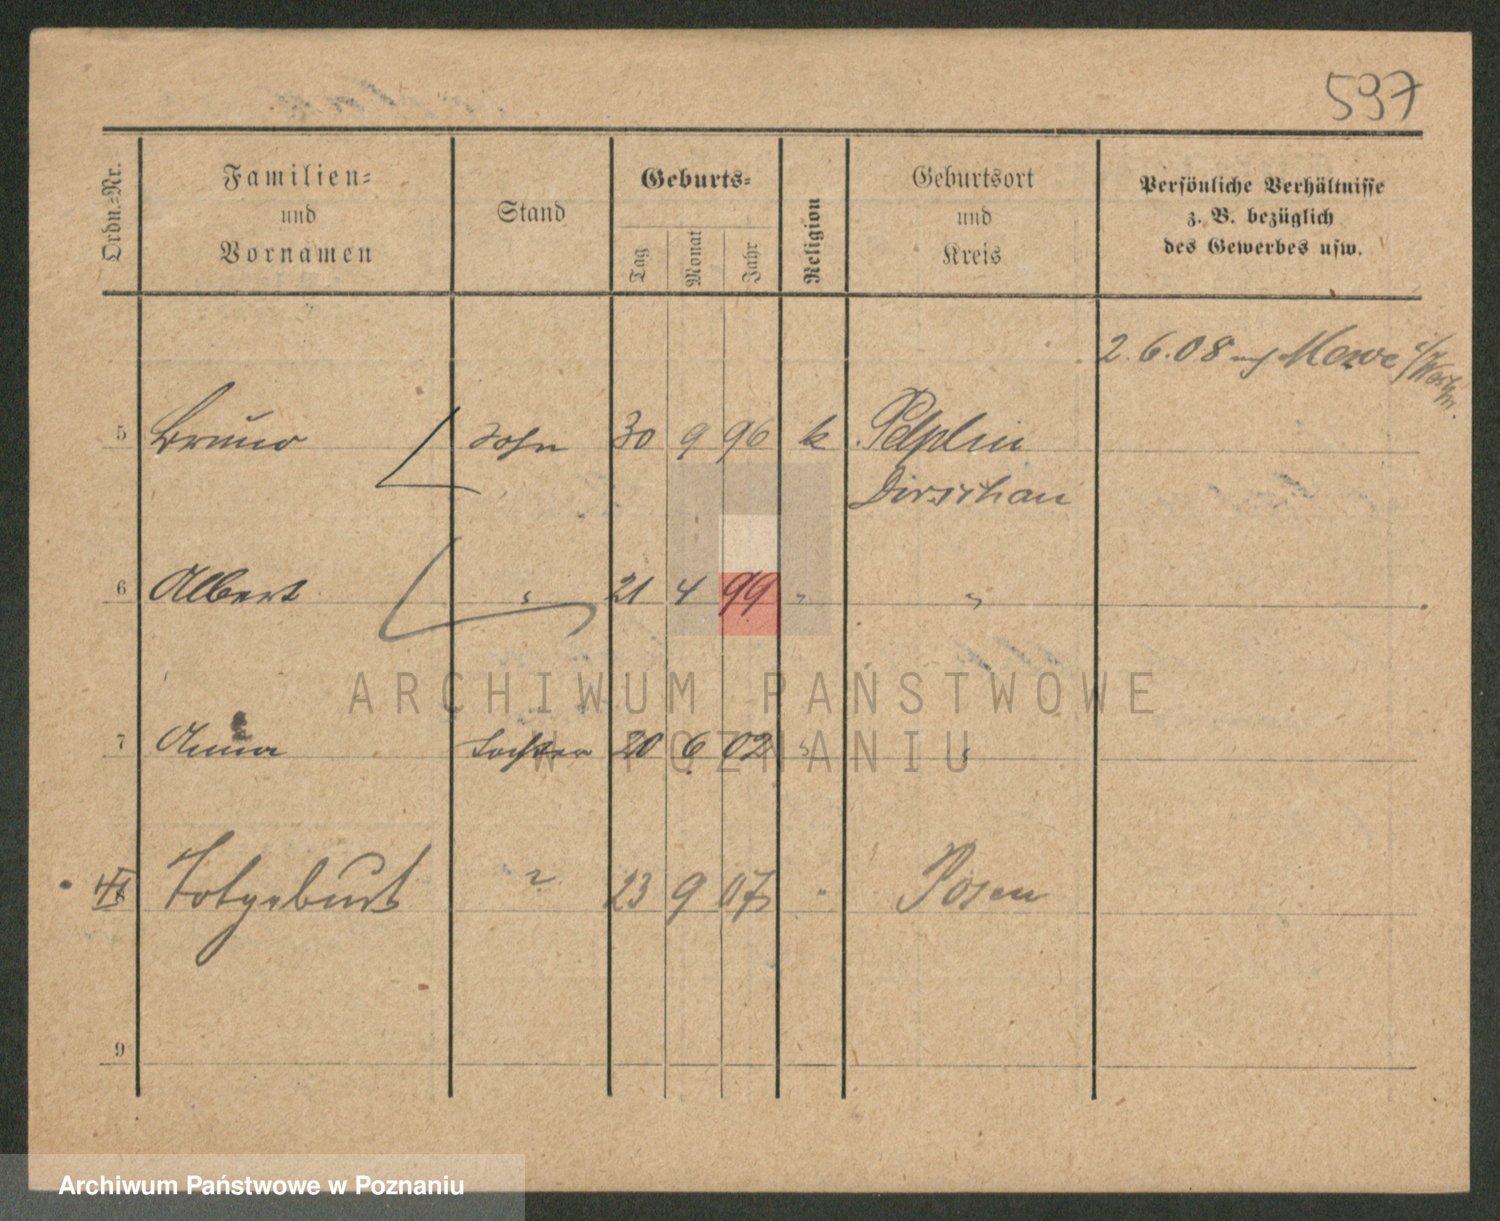 597
Ordn.-Nr.
Familien-
und
Vornamen
Stand
Geburts-
Tag
Monat
Jahr
Religion
Geburtsort
und
Kreis
Persönliche Verhältnisse
z. B. bezüglich
des Gewerbes usw.
2.6.08 nach Mewe
5 Bruno Sohn 30 9 96 k Pelplin
Dirschau
6 Albert " 21 4 99 " "
7 Anna Tochter 20 6 02 " "
Totgeburt " 23 9 07 " Posen
9
ARCHIWUM PAŃSTWOWE
W POZNANIU
Archiwum Państwowe w Poznaniu